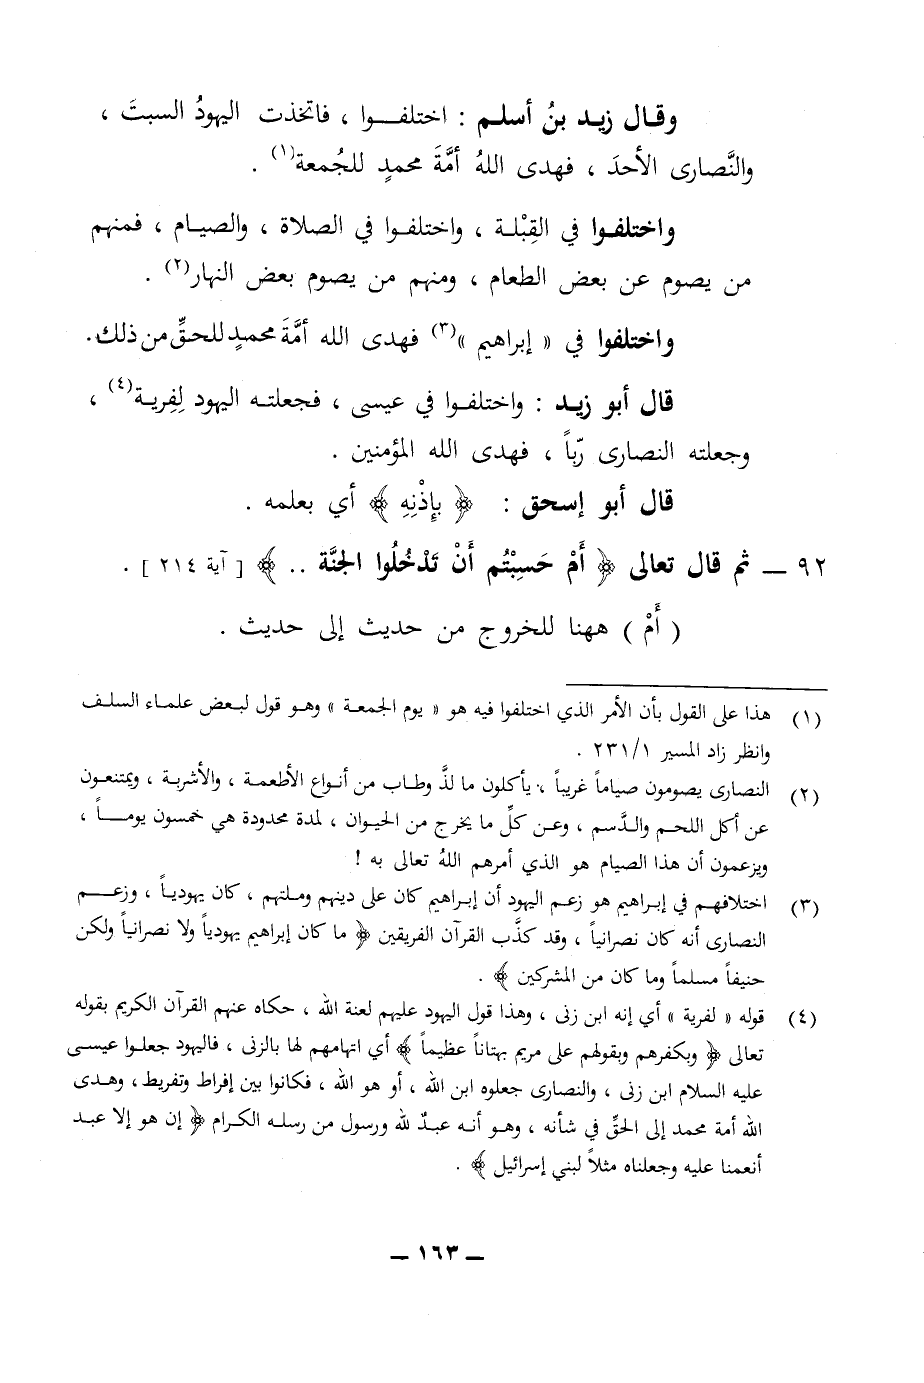 وقال زيد بنُ أسلم : اختلفوا ، فاتخذت اليهودُ السبتَ ،
والنَّصارى الأحدَ ، فهدى اللهُ أمَّةَ محمدٍ للجُمعة(١) .
واختلفوا في القِبْلة ، واختلفوا في الصلاة ، والصيام ، فمنهم
من يصوم عن بعض الطعام ، ومنهم من يصوم بعض النهار(٢) .
واختلفوا في « إبراهيم »(٣) فهدى الله أمَّةَ محمدٍ للحقِّ من ذلك.
قال أبو زيد : واختلفوا في عيسى ، فجعلته اليهود لِفِرية(٤) ،
وجعلته النصارى ربّاً ، فهدى الله المؤمنين .
قال أبو إسحق : ﴿ بِإِذْنِهِ ﴾ أي بعلمه .
٩٢ ـ ثم قال تعالى ﴿ أَمْ حَسِبْتُم أَنْ تَدْخُلُوا الجنَّة .. ﴾ [ آية ٢١٤ ] .
( أَمْ ) ههنا للخروج من حديث إلى حديث .
(١) هذا على القول بأن الأمر الذي اختلفوا فيه هو « يوم الجمعة » وهو قول لبعض علماء السلف
وانظر زاد المسير ٢٣١/١ .
(٢) النصارى يصومون صياماً غريباً ، يأكلون ما لذَّ وطاب من أنواع الأطعمة ، والأشربة ، ويمتنعون
عن أكل اللحم والدَّسم ، وعن كلِّ ما يخرج من الحيوان ، لمدة محدودة هي خمسون يوماً ،
ويزعمون أن هذا الصيام هو الذي أمرهم اللهُ تعالى به !
(٣) اختلافهم في إبراهيم هو زعم اليهود أن إبراهيم كان على دينهم وملتهم ، كان يهودياً ، وزعم
النصارى أنه كان نصرانياً ، وقد كذَّب القرآن الفريقين ﴿ ما كان إبراهيم يهودياً ولا نصرانياً ولكن
حنيفاً مسلماً وما كان من المشركين ﴾ .
(٤) قوله « لفرية » أي إنه ابن زنى ، وهذا قول اليهود عليهم لعنة الله ، حكاه عنهم القرآن الكريم بقوله
تعالى ﴿ وبكفرهم وبقولهم على مريم بهتاناً عظيماً ﴾ أي اتهامهم لها بالزنى ، فاليهود جعلوا عيسى
عليه السلام ابن زنى ، والنصارى جعلوه ابن الله ، أو هو الله ، فكانوا بين إفراط وتفريط ، وهدى
الله أمة محمد إلى الحقِّ في شأنه ، وهو أنه عبدٌ لله ورسول من رسله الكرام ﴿ إن هو إلا عبد
أنعمنا عليه وجعلناه مثلاً لبني إسرائيل ﴾ .
ـ ١٦٣ ـ